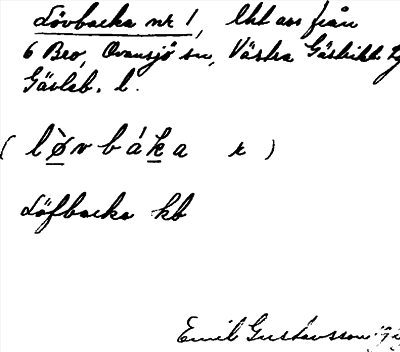 Lövbacka nr 1, lht avs från
6 Bro, Ovansjö sn, Västra Gästrikl. tg
Gävleb. l.
( lø̀vbáka r )
Löfbacka kb
Emil Gustavsson